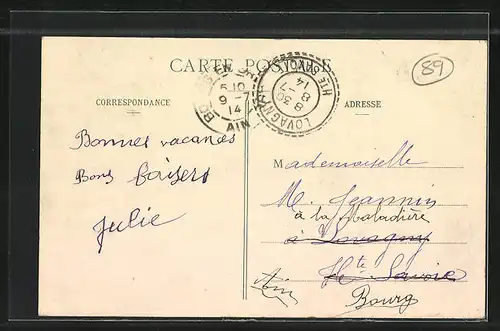 CARTE POSTALE
CORRESPONDANCE
ADRESSE
89
AIN
5 10
9 - 7
14
LOVAGNY
HTE SAVOIE
8 30
8 - 7
14
Bonnes vacances
Bons baisers
Julie
Mademoiselle
M. Jeannin
à la Maladière
à Lovagny
Hte Savoie
Bourg
Ain